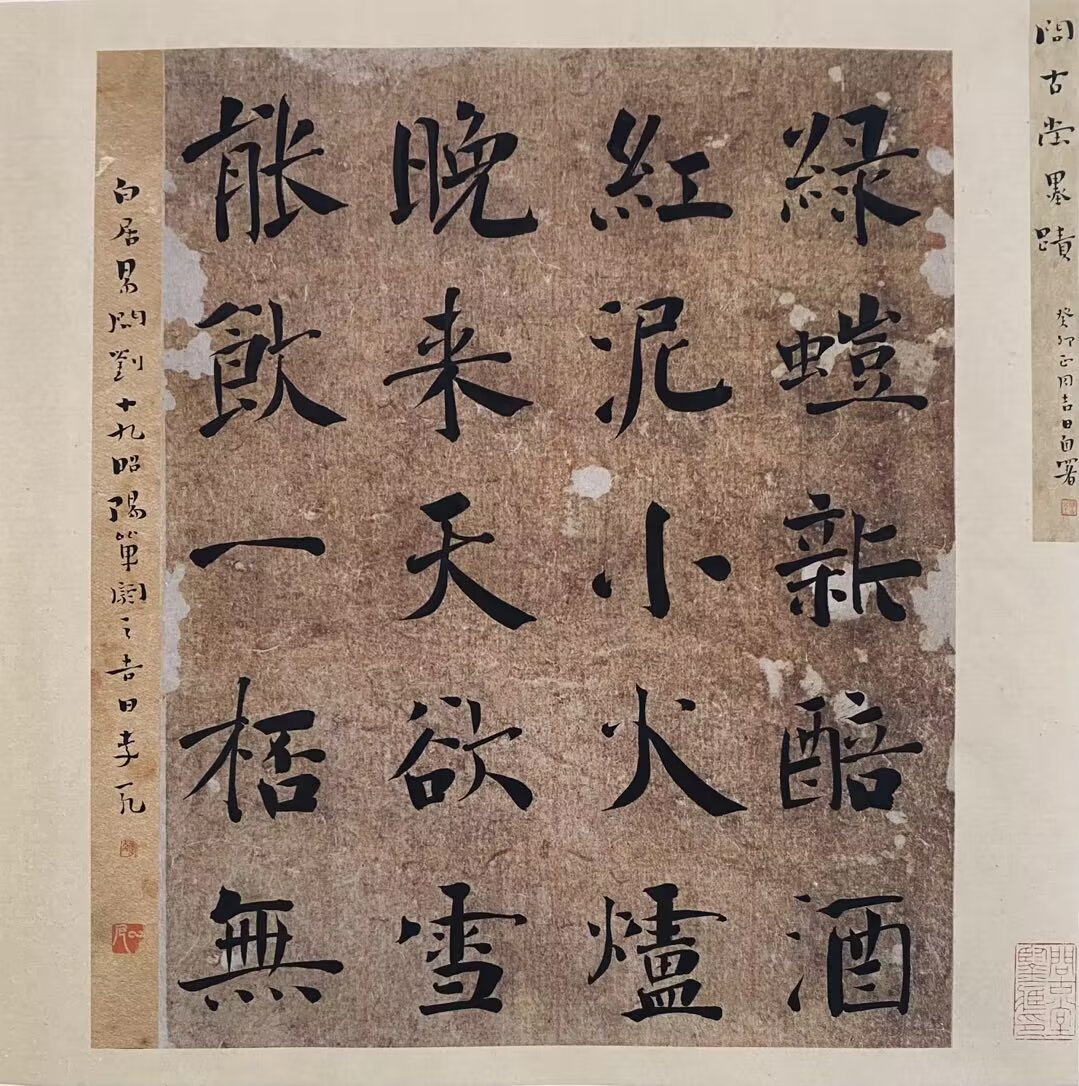 問古堂墨蹟
癸卯正月吉日自署
緑螘新醅酒
紅泥小火爐
晚来天欲雪
能飲一桮無
白居易問劉十九昭陽單閼之吉日李